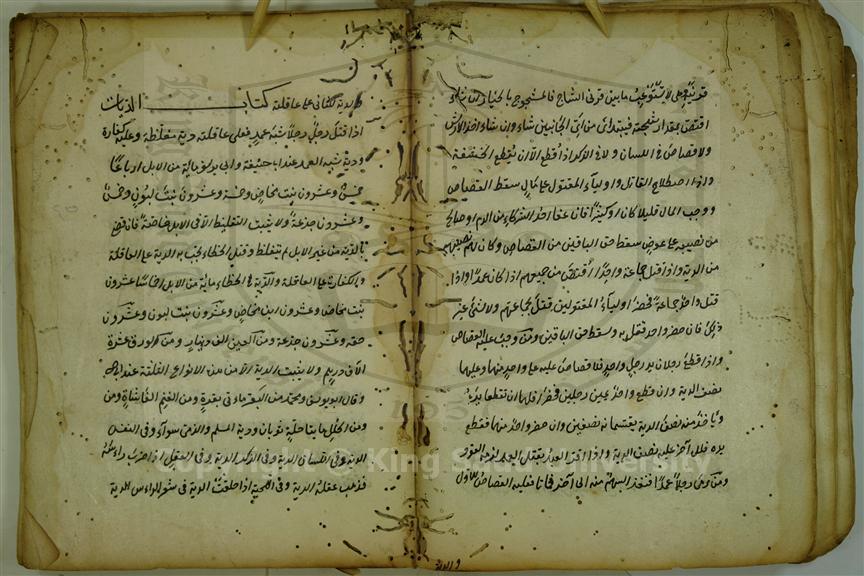 قرنيه وهى لا تستوعب ما بين قرنى الشاج فالمشجوج بالخيار ان شاء
اقتص بمقدار شجته يبتدئ من اى الجانبين شاء وان شاء اخذ الارش
ولا قصاص فى اللسان ولا فى الذكر الا ان تقطع الحشفة
واذا اصطلح القاتل واولياء المقتول على مال سقط القصاص
ووجب المال قليلا كان او كثيرا فان عفا احد الشركاء من الدم او صالح
من نصيبه على عوض سقط حق الباقين من القصاص وكان لهم نصيبهم
من الدية واذا قتل جماعة واحدا اقتص من جميعهم اذا كان عمدا واذا
قتل واحد جماعة فحضر اولياء المقتولين قتل بجماعتهم ولا شئ غير
ذلك فان حضر واحد قتل به وسقط حق الباقين ومن وجب عليه القصاص
واذا قطع رجلان يد رجل واحد فلا قصاص على واحد منهما وعليهما
نصف الدية وان قطع واحد يمين رجلين فحضرا فلهما ان يقطعا يده
وياخذ منه نصف الدية يقتسمانه نصفين وان حضر واحد منهما فقطع
يده فللاخر عليه نصف الدية واذا اقر العبد بقتل العمد لزمه القود
ومن رمى رجلا عمدا فنفذ السهم منه الى اخر فماتا فعليه القصاص للاول
والدية
والدية للثانى على عاقلته كتاب الديات
اذا قتل رجل رجلا شبه عمد فعلى عاقلته دية مغلظة وعليه كفارة
ودية شبه العمد عند ابى حنيفة وابى يوسف مائة من الابل ارباعا
خمس وعشرون بنت مخاض وخمسة وعشرون بنت لبون وخمس
وعشرون جذعة ولا يثبت التغليظ الا فى الابل خاصة فان قضى
بالدية من غير الابل لم تتغلظ وقتل الخطاء تجب به الدية على العاقلة
والكفارة على العاقلة والدية فى الخطاء مائة من الابل اخماسا عشرون
بنت مخاض وعشرون ابن مخاض وعشرون بنت لبون وعشرون
حقة وعشرون جذعة ومن العين الف دينار ومن الورق عشرة
الاف درهم ولا يثبت الدية الا من هذه الانواع الثلثة عند ابى ح
وقال ابو يوسف ومحمد من البقر مائتى بقرة ومن الغنم الفا شاة ومن
ومن الحلل مايتا حلة ثوبان ودية المسلم والذمى سواء وفى النفس
الدية وفى اللسان الدية وفى الذكر الدية وفى العقل اذا ضرب راسه
فذهب عقله الدية وفى اللحية اذا حلقت الدية فى شعر الراس الدية